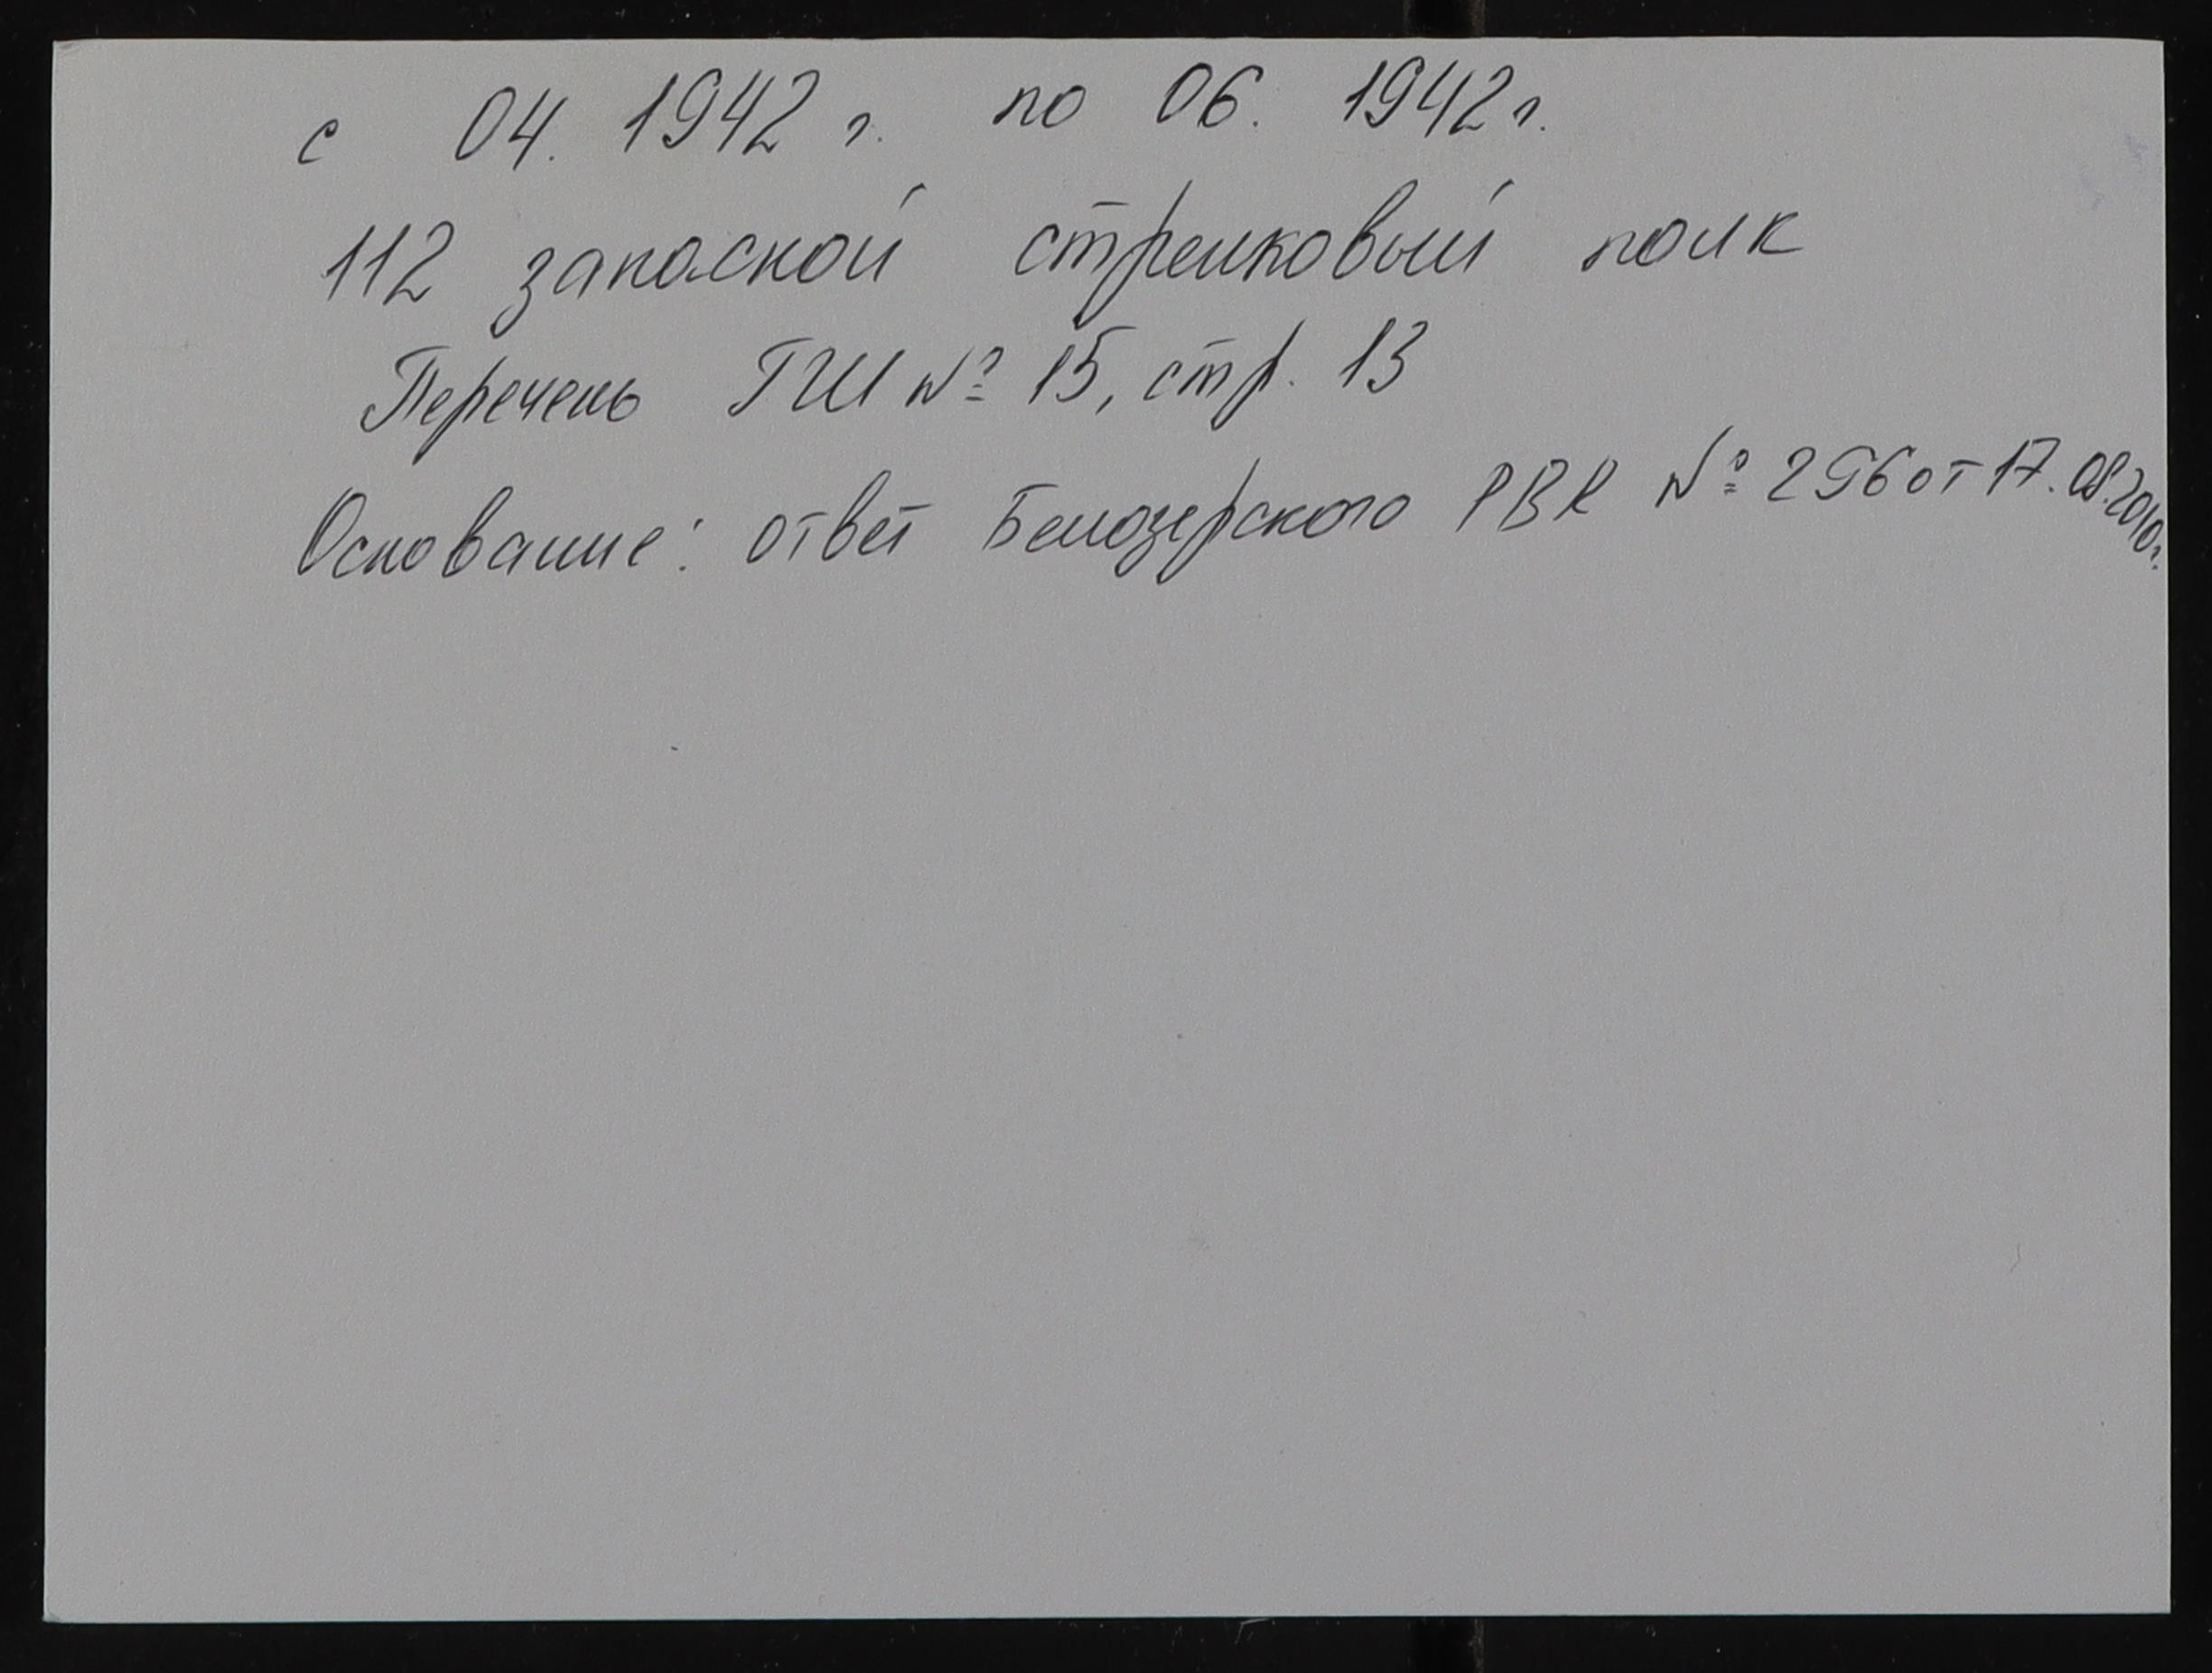 с 04. 1942 г. по 06. 1942 г.
112 запасной стрелковый полк
Перечень ГШ № 15, стр. 13
Основание: ответ Белозерского РВК № 256 от 17.08.2010г.